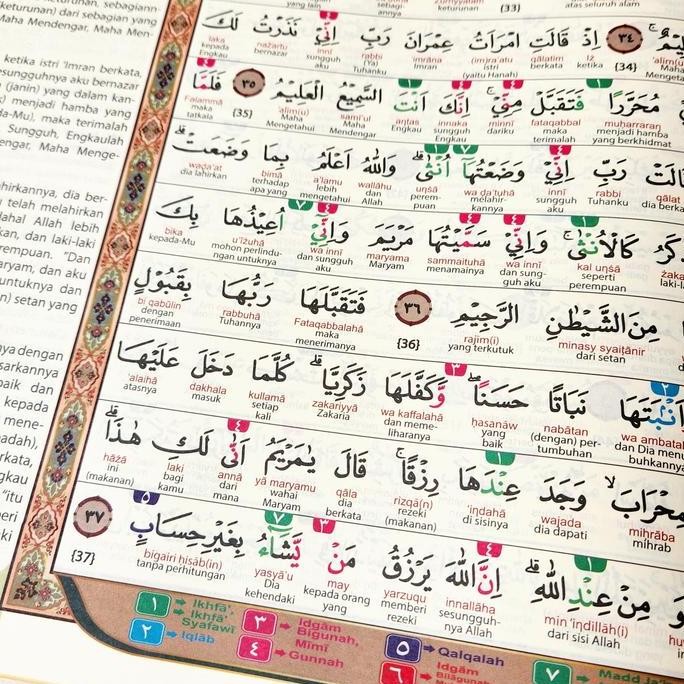 keturunan, sebagiann-
keturunan) dari sebagian yang
Maha Mendengar, Maha Men-
ketika istri 'Imran berkata,
sesungguhnya aku bernazar
(janin) yang dalam kan-
menjadi hamba yang
da-Mu), maka terimalah
Sungguh, Engkaulah
engar, Maha Menge-
hirkannya, dia ber-
u telah melahirkan
dahal Allah lebih
kan, dan laki-laki
rempuan. "Dan
aryam, dan aku
untuknya dan
n) setan yang
nya dengan
sarkannya
baik dan
kepada
adah),
rkata,
gkau
"itu
eri
ki
yang lain
keturunan
{33}
atas seluruh alam
٣٤ اِذْ قَالَتِ امْرَاَتُ عِمْرَانَ رَبِّ اِنِّيْ نَذَرْتُ لَكَ
{34} iż qālatim (imra'atu 'imrāna rabbi innī nażartu laka
Ketika berkata istri Imran (Ya) Tuhanku sungguh aku bernazar kepada Engkau
(yaitu Hanah)
مُحَرَّرًا فَتَقَبَّلْ مِنِّيْ ۚ اِنَّكَ اَنْتَ السَّمِيْعُ الْعَلِيْمُ ٣٥ فَلَمَّا
muḥarraran fataqabbal minnī innaka antas samī'ul 'alīm(u) {35} Falammā
menjadi hamba yang berkhidmat maka terimalah dariku sungguh Engkau Engkau Maha Mendengar Maha Mengetahui maka tatkala
رَبِّ اِنِّيْ وَضَعْتُهَآ اُنْثٰىۗ وَاللّٰهُ اَعْلَمُ بِمَا وَضَعَتْۗ
qālat rabbi innī waḍa'tuhā unṡā wallāhu a'lamu bimā waḍa'at
dia berkata Tuhanku sungguh aku melahirkannya perempuan dan Allah lebih mengetahui terhadap apa yang dia lahirkan
كَالْاُنْثٰىۚ وَاِنِّيْ سَمَّيْتُهَا مَرْيَمَ وَاِنِّيْٓ اُعِيْذُهَا بِكَ
kal unṡā wa innī sammaituhā maryama wa innī u'īżuhā bika
seperti perempuan dan sungguh aku menamainya Maryam dan sungguh aku mohon perlindungan untuknya kepada-Mu
مِنَ الشَّيْطٰنِ الرَّجِيْمِ ٣٦ فَتَقَبَّلَهَا رَبُّهَا بِقَبُوْلٍ
minasy syaiṭānir rajīm(i) {36} Fataqabbalahā rabbuhā bi qabūlin
dari setan yang terkutuk maka menerimanya Tuhannya dengan penerimaan
نَبَاتًا حَسَنًاۖ وَّكَفَّلَهَا زَكَرِيَّاۗ كُلَّمَا دَخَلَ عَلَيْهَا
nabātan ḥasanāw wa kaffalahā zakariyyā kullamā dakhala 'alaihā
(dengan) pertumbuhan yang baik dan memeliharanya Zakaria setiap kali masuk atasnya
الْمِحْرَابَۙ وَجَدَ عِنْدَهَا رِزْقًاۚ قَالَ يٰمَرْيَمُ اَنّٰى لَكِ هٰذَاۗ
miḥrāba wajada 'indahā rizqā(n) qāla yā maryamu annā laki hāżā
mihrab dia dapati di sisinya rezeki (makanan) dia berkata wahai Maryam dari mana bagi kamu ini (makanan)
مِنْ عِنْدِ اللّٰهِۗ اِنَّ اللّٰهَ يَرْزُقُ مَنْ يَّشَاۤءُ بِغَيْرِ حِسَابٍ ٣٧
min 'indillāh(i) innallāha yarzuqu may yasyā'u bigairi ḥisāb(in) {37}
dari sisi Allah sesungguhnya Allah memberi rezeki kepada orang yang Dia kehendaki tanpa perhitungan
١ Ikhfā', Ikhfā' Syafawī
٢ Iqlāb
٣ Idgām Bigunah,
٤ Mīmī Gunnah
٥ Qalqalah
٦ Idgām
٧